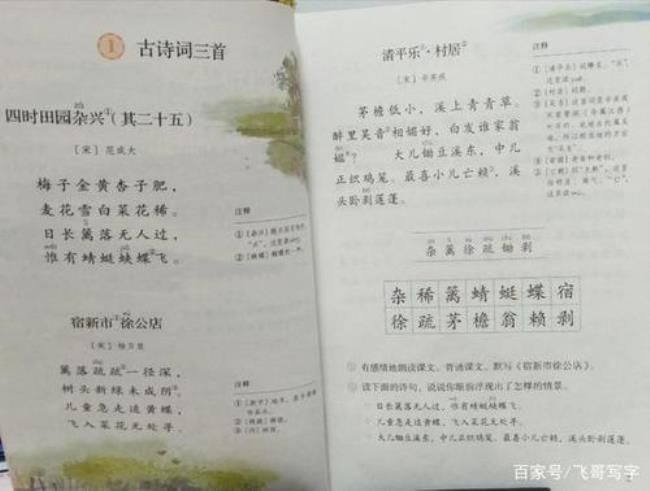 1 古诗词三首
zá
四时田园杂兴①（其二十五）
［宋］范成大
梅子金黄杏子肥，
麦花雪白菜花稀。
日长篱落无人过，
惟有蜻蜓蛱蝶②飞。
注释
宿新市①徐公店
［宋］杨万里
篱落疏疏②一径深，
树头新绿未成阴③。
儿童急走追黄蝶，
飞入菜花无处寻。
注释
清平乐①·村居②
［宋］辛弃疾
茅檐低小，溪上青青草。
醉里吴音③相媚好，白发谁家翁
媪④？　大儿锄豆溪东，中儿
正织鸡笼。最喜小儿亡赖⑤，溪
头卧剥莲蓬。
注释
杂 篱 徐 疏 锄 剥
杂 稀 篱 蜻 蜓 蝶 宿
徐 疏 茅 檐 翁 赖 剥
有感情地朗读课文。背诵课文。默写《宿新市徐公店》。
读下面的诗句，说说你眼前浮现出了怎样的情景。
日长篱落无人过，惟有蜻蜓蛱蝶飞。
儿童急走追黄蝶，飞入菜花无处寻。
大儿锄豆溪东，中儿正织鸡笼。最喜小儿亡赖，溪头卧剥莲蓬。
百家号/飞哥写字